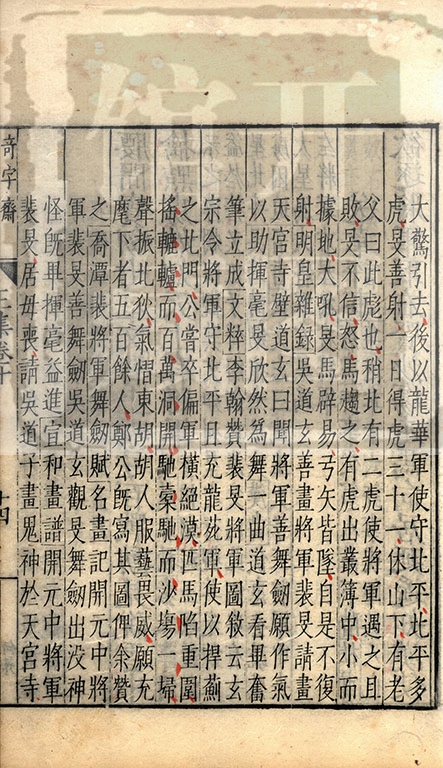 大驚引去後以龍華軍使守北平北平多
虎旻善射一日得虎三十一休山下有老
父曰此彪也稍北有二虎使將軍遇之且
敗旻不信怒馬趨之有虎出叢簿中小而
據地大吼旻馬辟易弓矢皆墜自是不復
射明皇雜錄吳道玄善畫將軍裴旻請畫
天宮寺壁道玄曰聞將軍善舞劒願作氣
以助揮毫旻欣然爲舞一曲道玄看畢奮
筆立成文粹李翰贊裴旻將軍圖敘云玄
宗令將軍守北平且充龍苑軍使以捍薊
之北門公嘗卒偏軍橫絕漠匹馬陷重圍
搖轤轤而百萬洞開馳槖馳而沙塲一掃
聲振北狄氣慴東胡胡人服藝畏威願充
麾下者五百餘人鄭公旣寫其圖俾余贊
之喬潭裴將軍舞劒賦名畫記開元中將
軍裴旻善舞劒吳道玄觀旻舞劒出没神
怪旣畢揮毫益進宣和畫譜開元中將軍
裴旻居母喪請吳道子畫鬼神於天宮寺
奇字齋
卷十
十四